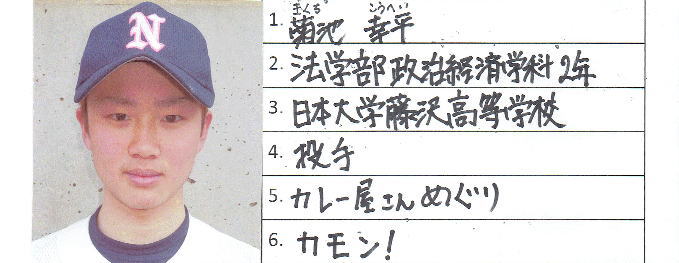 N
きくち こうへい
1. 菊池 幸平
2. 法学部政治経済学科2年
3. 日本大学藤沢高等学校
4. 投手
5. カレー屋さんめぐり
6. カモン!